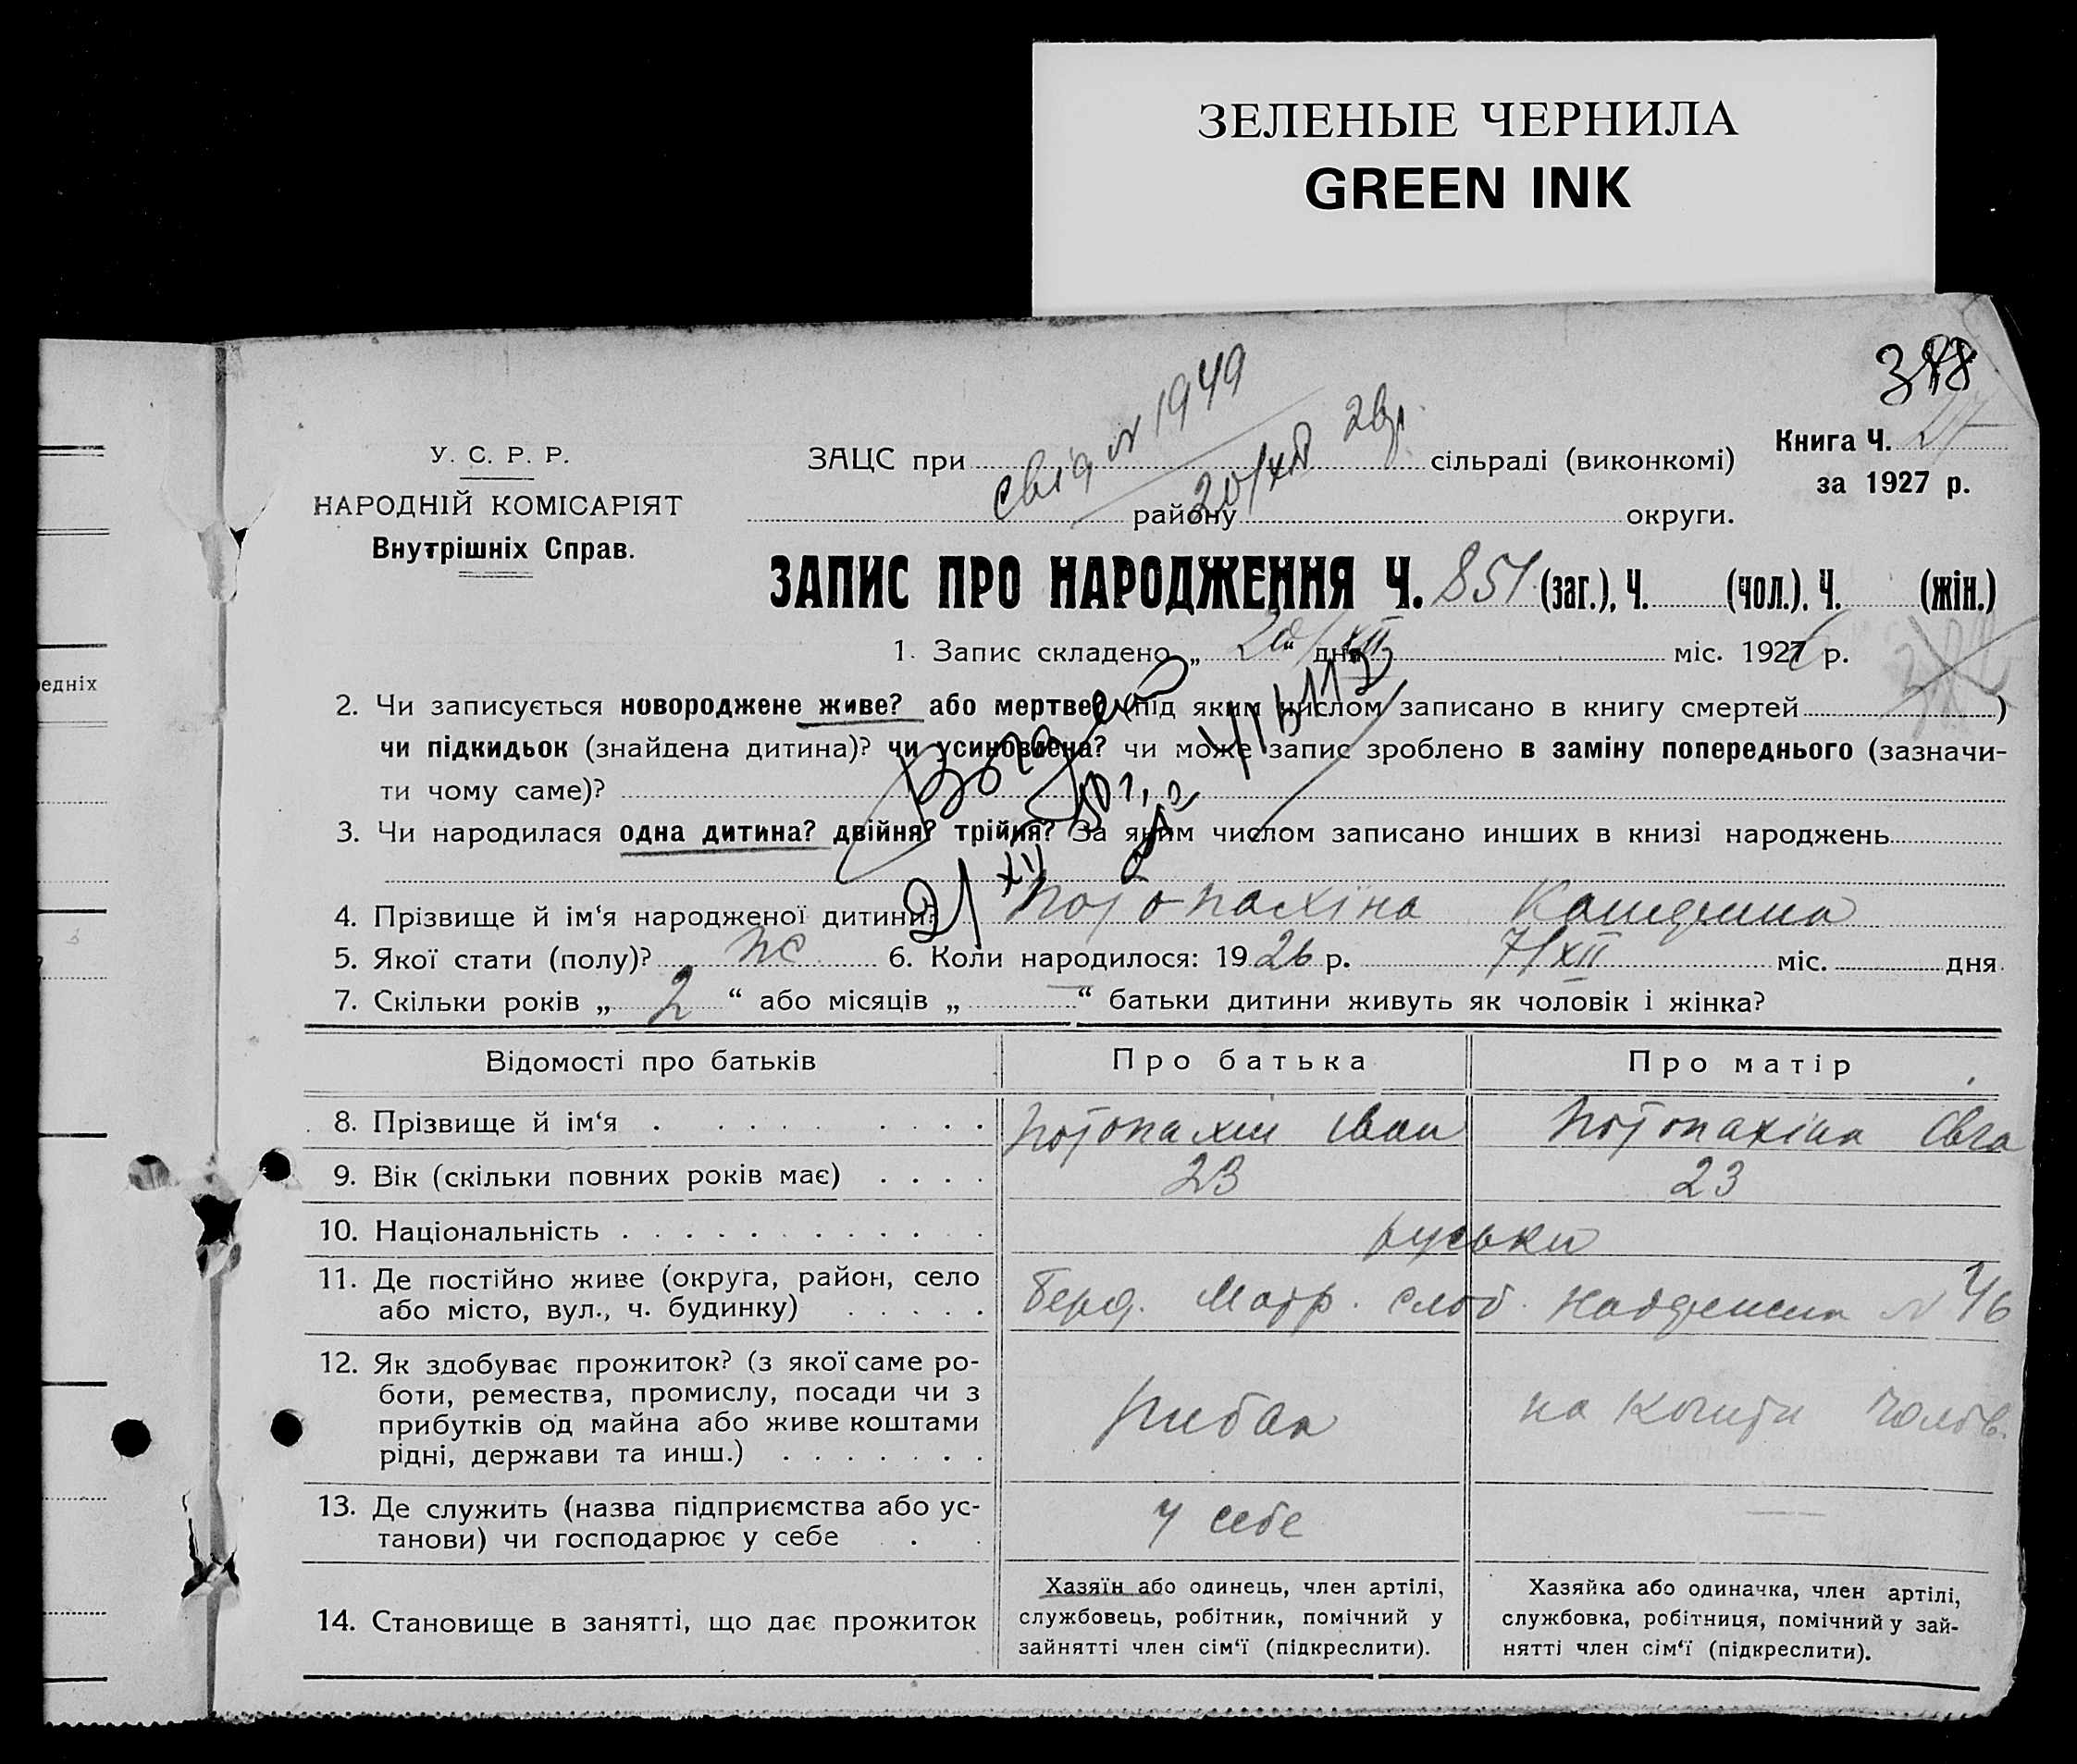 ЗЕЛЕНЫЕ ЧЕРНИЛА
GREEN INK
У. С. Р. Р.
НАРОДНІЙ КОМІСАРІЯТ
Внутрішніх Справ.
свід. N 1949
20/XII 26р.
ЗАЦС при сільраді (виконкомі)
району округи.
Книга Ч.
за 1927 р.
ЗАПИС ПРО НАРОДЖЕННЯ Ч. 851 (заг.), Ч. (чол.). Ч. (жін.)
1. Запис складено „ 20/XII “ дня міс. 1926 р.
2. Чи записується новороджене живе? або мертве? (під яким числом записано в книгу смертей )
чи підкидьок (знайдена дитина)? чи усиновлена? чи може запис зроблено в заміну попереднього (зазначи-
ти чому саме)?
3. Чи народилася одна дитина? двійня? трійня? За яким числом записано инших в книзі народжень
4. Прізвище й ім‘я народженої дитини? Потопахіна
5. Якої стати (полу)? ж 6. Коли народилося: 1926 р. 7/XII міс. дня
7. Скільки років „ 2 “ або місяців „ — “ батьки дитини живуть як чоловік і жінка?
едніх
Відомості про батьків Про батька Про матір
8. Прізвище й ім‘я Потопахин Іван Потопахіна Євга
9. Вік (скільки повних років має) 23 23
10. Національність руськи
11. Де постійно живе (округа, район, село
або місто, вул., ч. будинку)
Берд. Матр. слоб. N 46
12. Як здобуває прожиток? (з якої саме ро-
боти, ремества, промислу, посади чи з
прибутків од майна або живе коштами
рідні, держави та инш.)
рибак на кошти чолов.
13. Де служить (назва підприємства або ус-
танови) чи господарює у себе
у себе —
14. Становище в занятті, що дає прожиток
Хазяїн або одинець, член артілі,
службовець, робітник, помічний у
зайнятті член сім‘ї (підкреслити).
Хазяйка або одиначка, член артілі,
службовка, робітниця, помічний у зай-
нятті член сім‘ї (підкреслити).